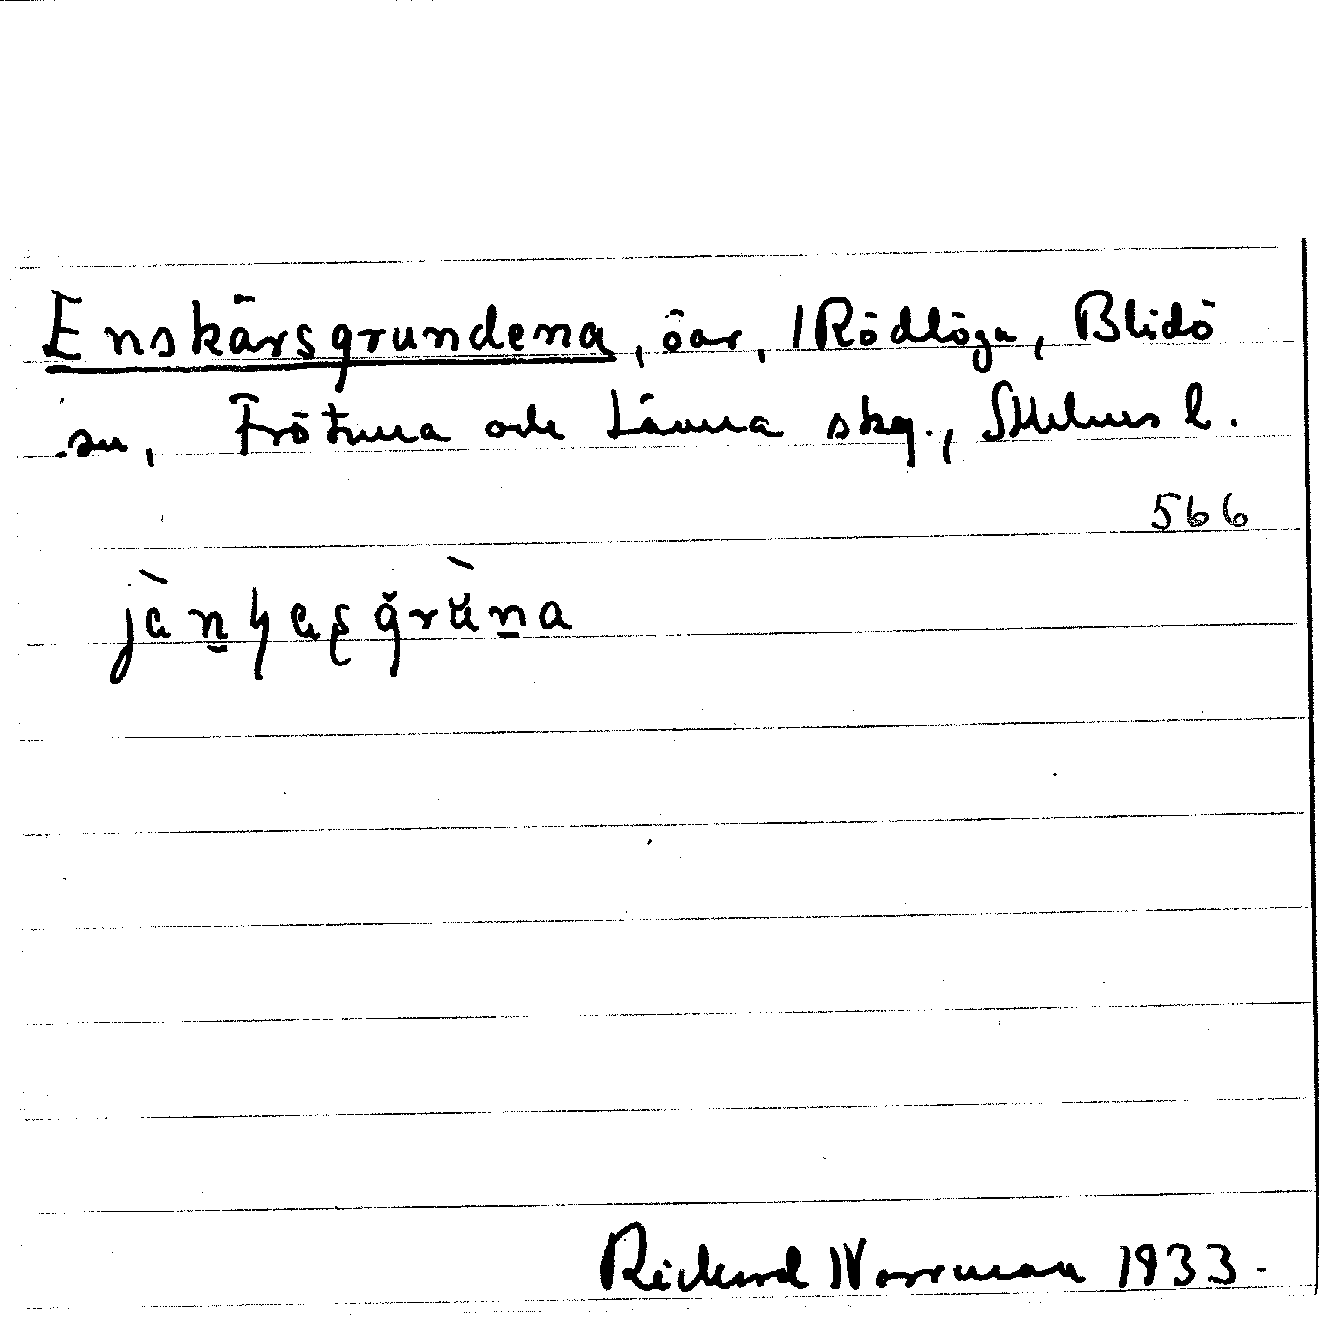 Enskärsgrundena, öar, Rödlöga, Blidö
sn, Frötuna och Länna skg., Sthlms l.
566
Rickard Norrman 1933.